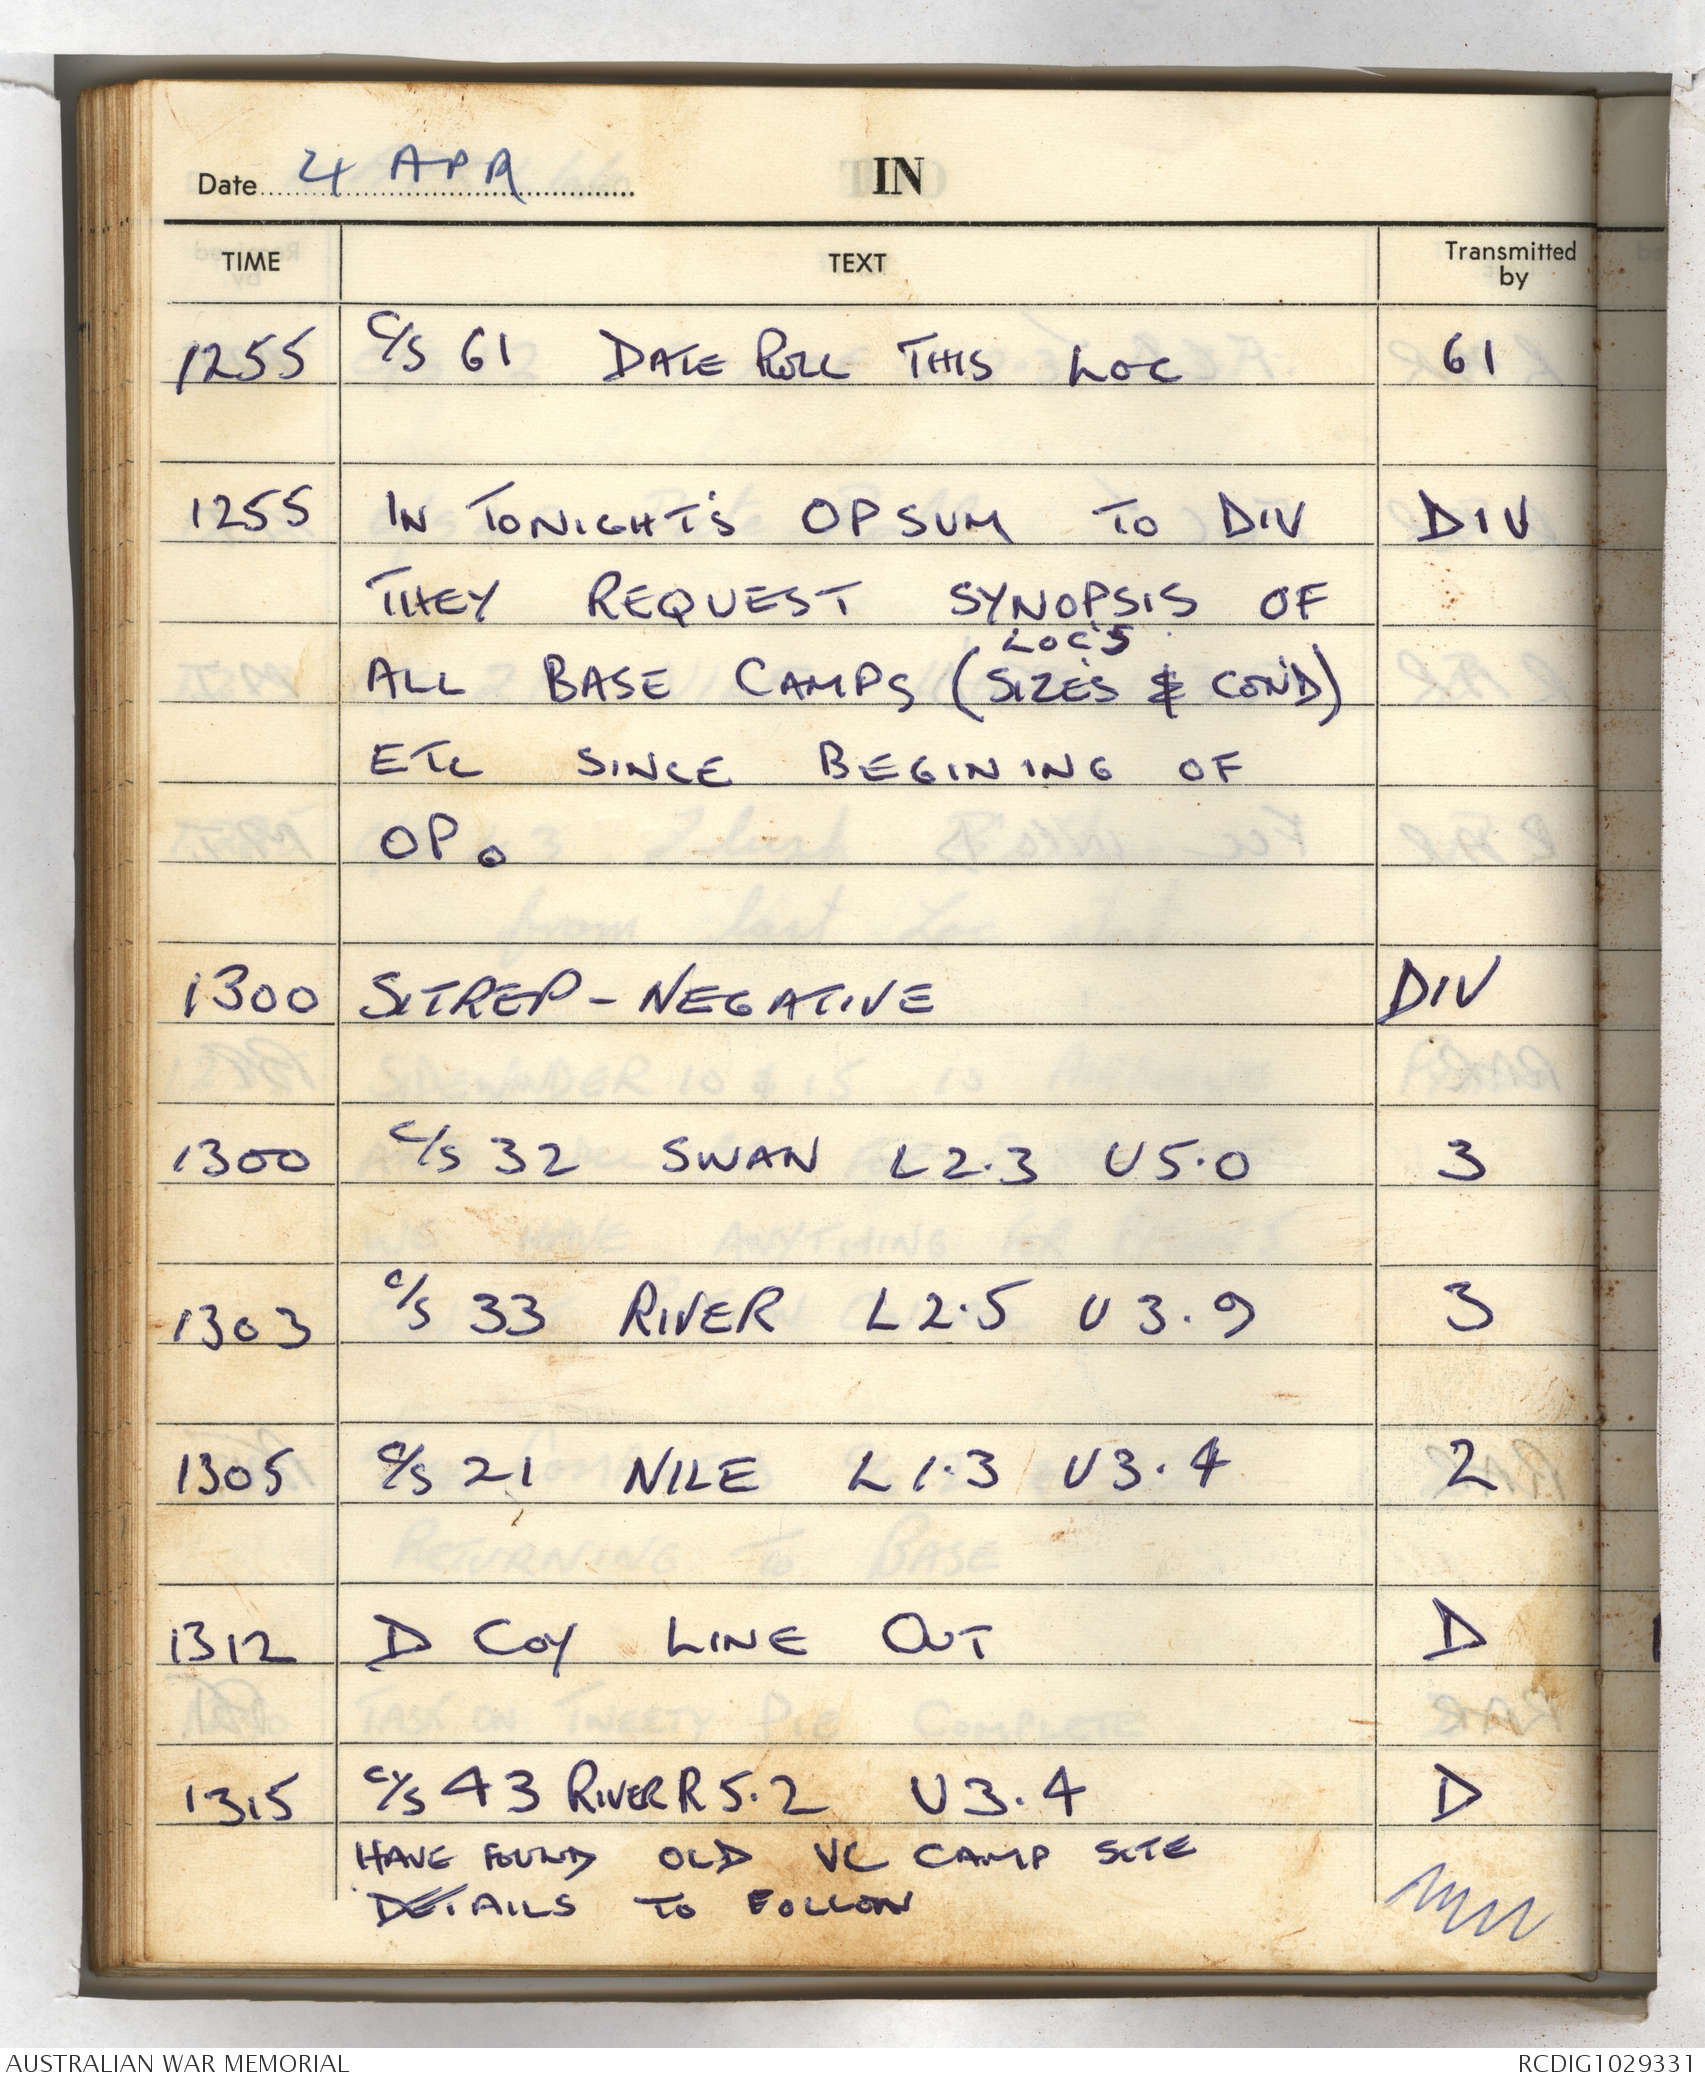 Date 4 APR
IN
TIME TEXT Transmitted by
1255 C/S 61 DATE ROLL THIS LOC 61
1255 IN TONIGHT'S OPSUM TO DIV DIV
THEY REQUEST SYNOPSIS OF
LOC'S
ALL BASE CAMPS (SIZES & CON'D)
ETC SINCE BEGINING OF
OP.
1300 SITREP - NEGATIVE DIV
1300 C/S 32 SWAN L2.3 U5.0 3
1303 C/S 33 RIVER L2.5 U3.9 3
1305 C/S 21 NILE L1.3 U3.4 2
1312 D COY LINE OUT D
1315 C/S 43 RIVER R5.2 U3.4 D
HAVE FOUND OLD VC CAMP SITE
DETAILS TO FOLLOW
AUSTRALIAN WAR MEMORIAL RCDIG1029331